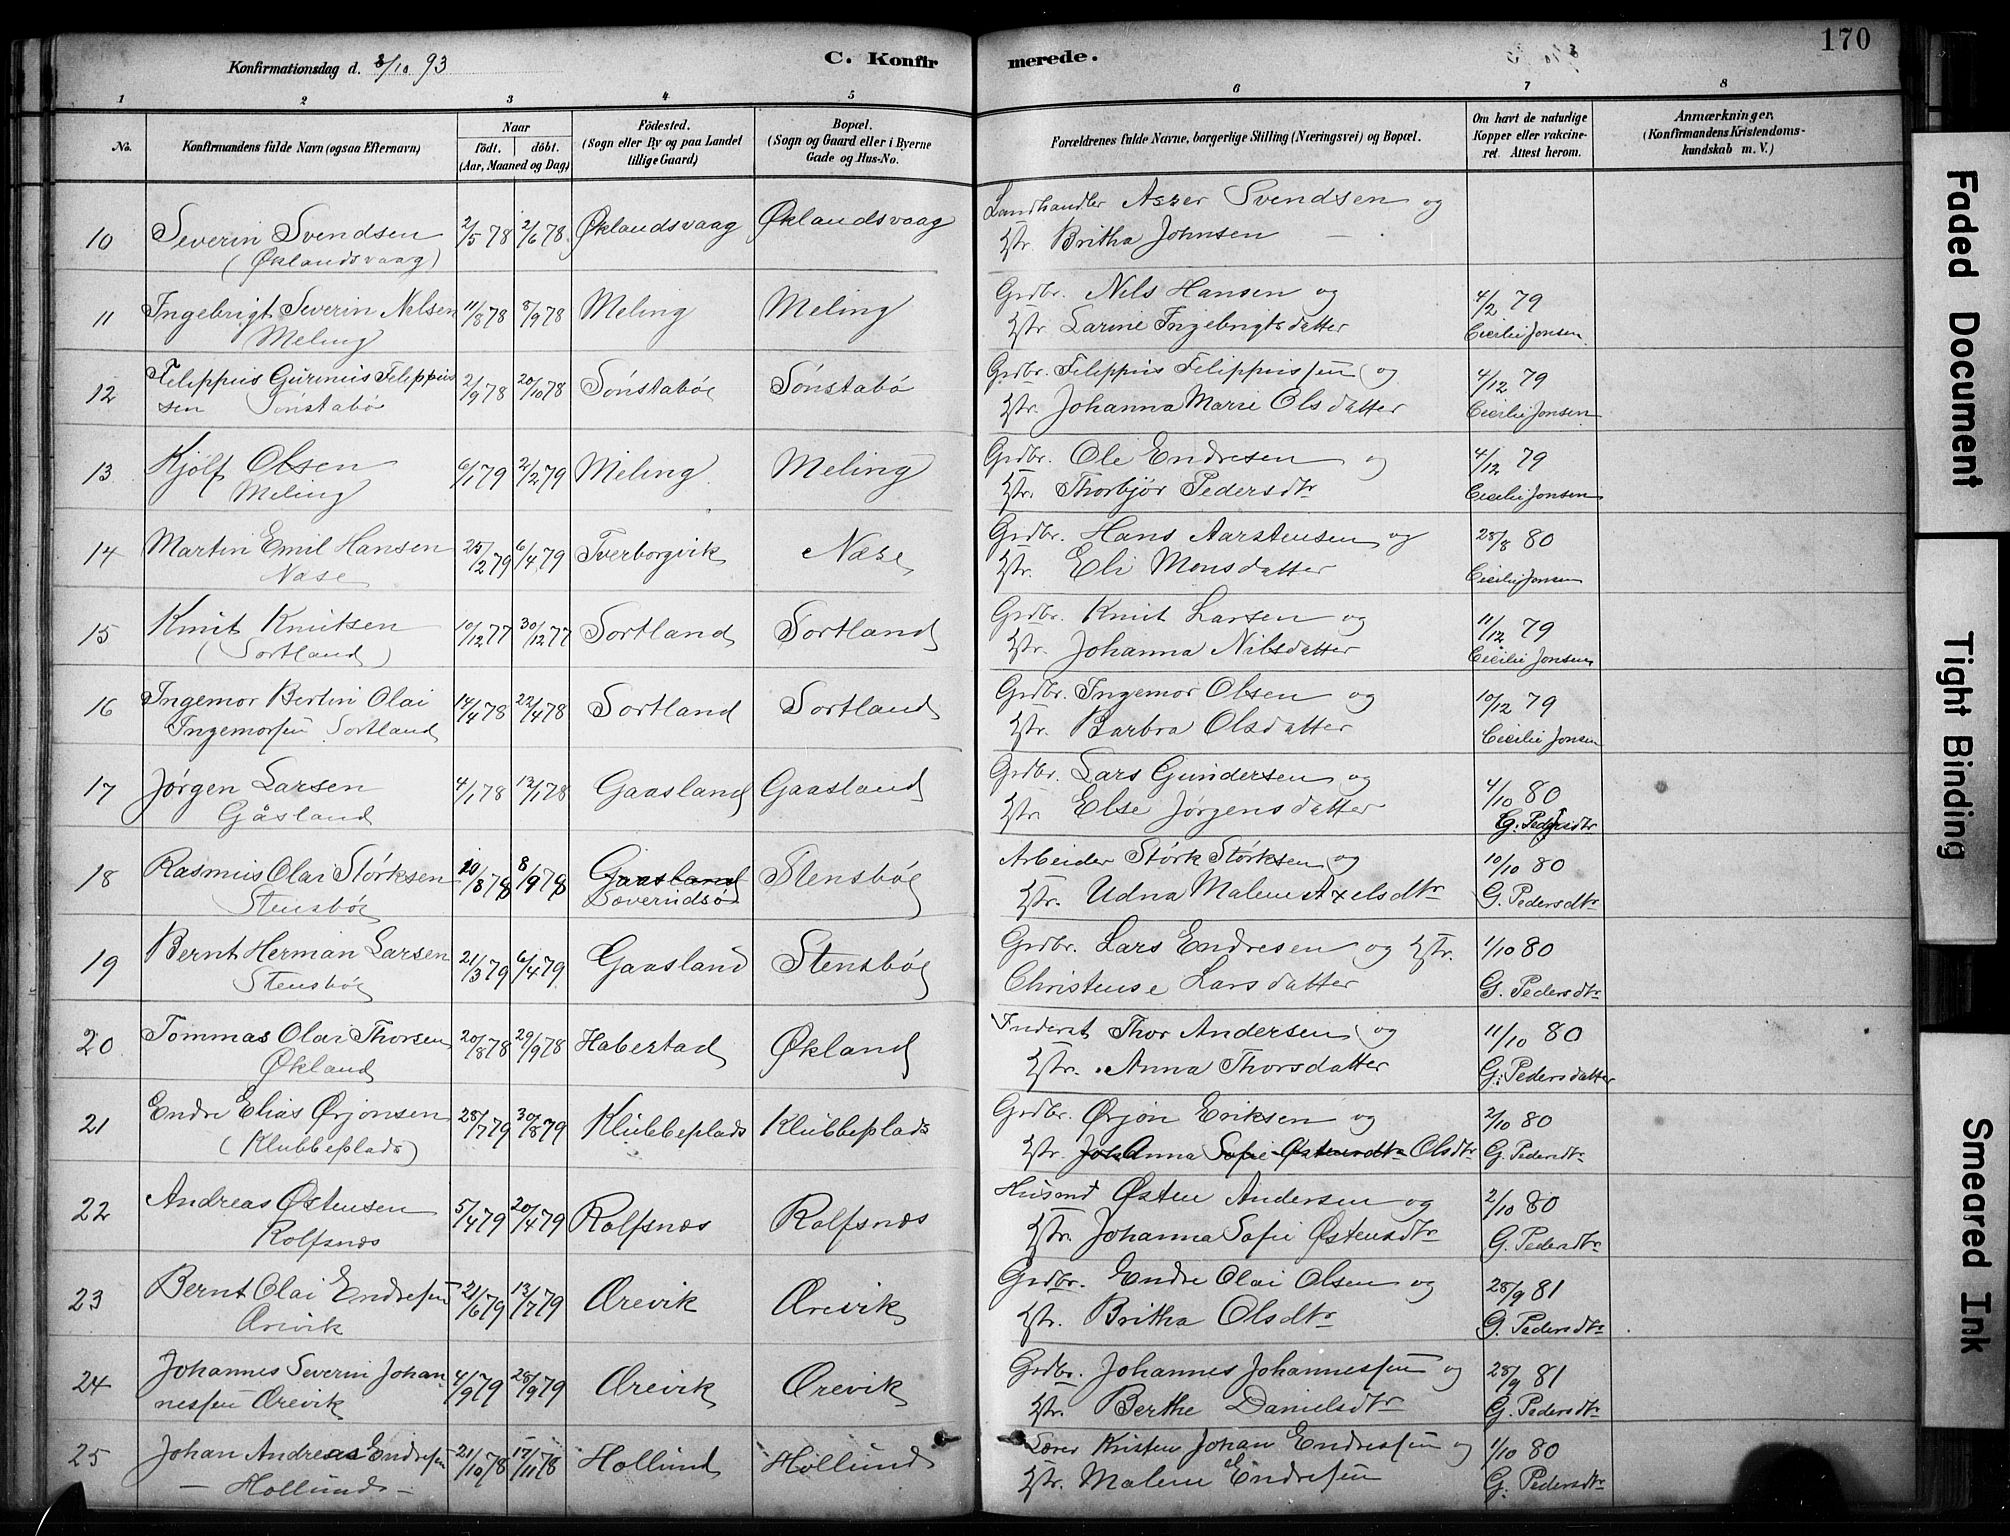 170
Konfirmationsdag d. 8/10 93
C. Konfir
merede.
1 2 3 4 5 6 7 8
No.
Konfirmandens fulde Navn (ogsaa Efternavn)
Naar
födt. döbt.
(Aar, Maaned og Dag)
Födested.
(Sogn eller By og paa Landet
tillige Gaard)
Bopæl.
(Sogn og Gaard eller i Byerne
Gade og Hus-No.
Forældrenes fulde Navne, borgerlige Stilling (Næringsvei) og Bopæl.
Om havt de naturlige
Kopper eller vakcine-
ret. Attest herom.
Anmærkninger.
(Konfirmandens Kristendoms-
kundskab m. V.)
10 Severin Svendsen 2/5 78 2/6 78 Øklandsvaag Øklandsvaag Landhandler Asser Svendsen og
(Øklandsvaag) Hstr. Britha Johnsen
11 Ingebrigt Severin Nilsen 11/8 78 8/9 78 Meling Meling Grdbr. Nils Hansen og 4/2 79
Meling Hstr. Larine Ingebrigtsdatter Cecilie Jonsen
12 Filippus Gurinius Filippus 2/9 78 20/10 78 Sönstabø Sönstabø Grdbr. Filippus Filippussen og 4/12 79
sen Sönstabø Hstr. Johanna Marie Olsdatter Cecilie Jonsen
13 Kjölf Olsen 6/1 79 2/2 79 Meling Meling Grdbr. Ole Endresen og 4/12 79
Meling Hstr. Thorbjør Pedersdtr Cecilie Jonsen
14 Martin Emil Hansen 25/2 79 6/4 79 Tverborgvik Næse Grdbr. Hans Aarstensen og 28/8 80
Næse Hstr. Eli Monsdatter Cecilie Jonsen
15 Knut Knutsen 10/12 77 30/12 77 Sortland Sortland Grdbr. Knut Larsen og 11/12 79
(Sortland) Hstr. Johanna Nilsdatter Cecilie Jonsen
16 Ingemor Bertin Olai 14/4 78 22/4 78 Sortland Sortland Grdbr. Ingemor Olsen og 10/12 79
Ingemorsen Sortland Hstr. Barbra Olsdatter Cecilie Jonsen
17 Jørgen Larsen 4/1 78 12/1 78 Gaasland Gaasland Grdbr. Lars Gundersen og 4/10 80
Gåsland Hstr. Else Jørgensdatter G. Pedersdtr
18 Rasmus Olai Størksen 10/8 78 8/9 78 Gaasland Stensbø Arbeider Størk Størksen og 10/10 80
Stensbø Hstr. Udna Malene Axelsdtr G. Pedersdtr
19 Bernt Herman Larsen 21/3 79 6/4 79 Gaasland Stensbø Grdbr. Lars Endresen og Hstr. 1/10 80
Stensbø Christense Larsdatter G. Pedersdtr
20 Tommas Olai Thorsen 20/8 78 29/9 78 Habestad Økland Inderst Thor Andersen og 11/10 80
Økland Hstr. Anna Thorsdatter G. Pedersdatter
21 Endre Elias Ørjonsen 28/7 79 30/8 79 Klubbeplads Klubbeplads Grdbr. Ørjon Eriksen og 2/10 80
(Klubbeplads) Hstr. JohAnna Sofie Østensdtr Olsdtr G. Pedersdtr
22 Andreas Østensen 5/4 79 20/4 79 Rolfsnæs Rolfsnæs Husmd Østen Andersen og 2/10 80
Rolfsnæs Hstr. Johanna Sofie Østensdtr G. Pedersdtr
23 Bernt Olai Endresen 21/6 79 13/7 79 Ørevik Ørevik Grdbr. Endre Olai Olsen og 28/9 81
Ørevik Hstr. Britha Olsdtr G. Pedersdtr
24 Johannes Severin Johan 4/9 79 28/9 79 Ørevik Ørevik Grdbr. Johannes Johannessen og 28/9 81
nessen Ørevik Hstr. Berthe Danielsdtr G. Pedersdtr
25 Johan Andreas Endresen 21/10 78 17/11 78 Hollund Hollund Lærer Kristen Johan Endressen og 1/10 80
- Hollund - Hstr. Malene Endresen G. Pedersdtr
Faded Document
Tight Binding
Smeared Ink